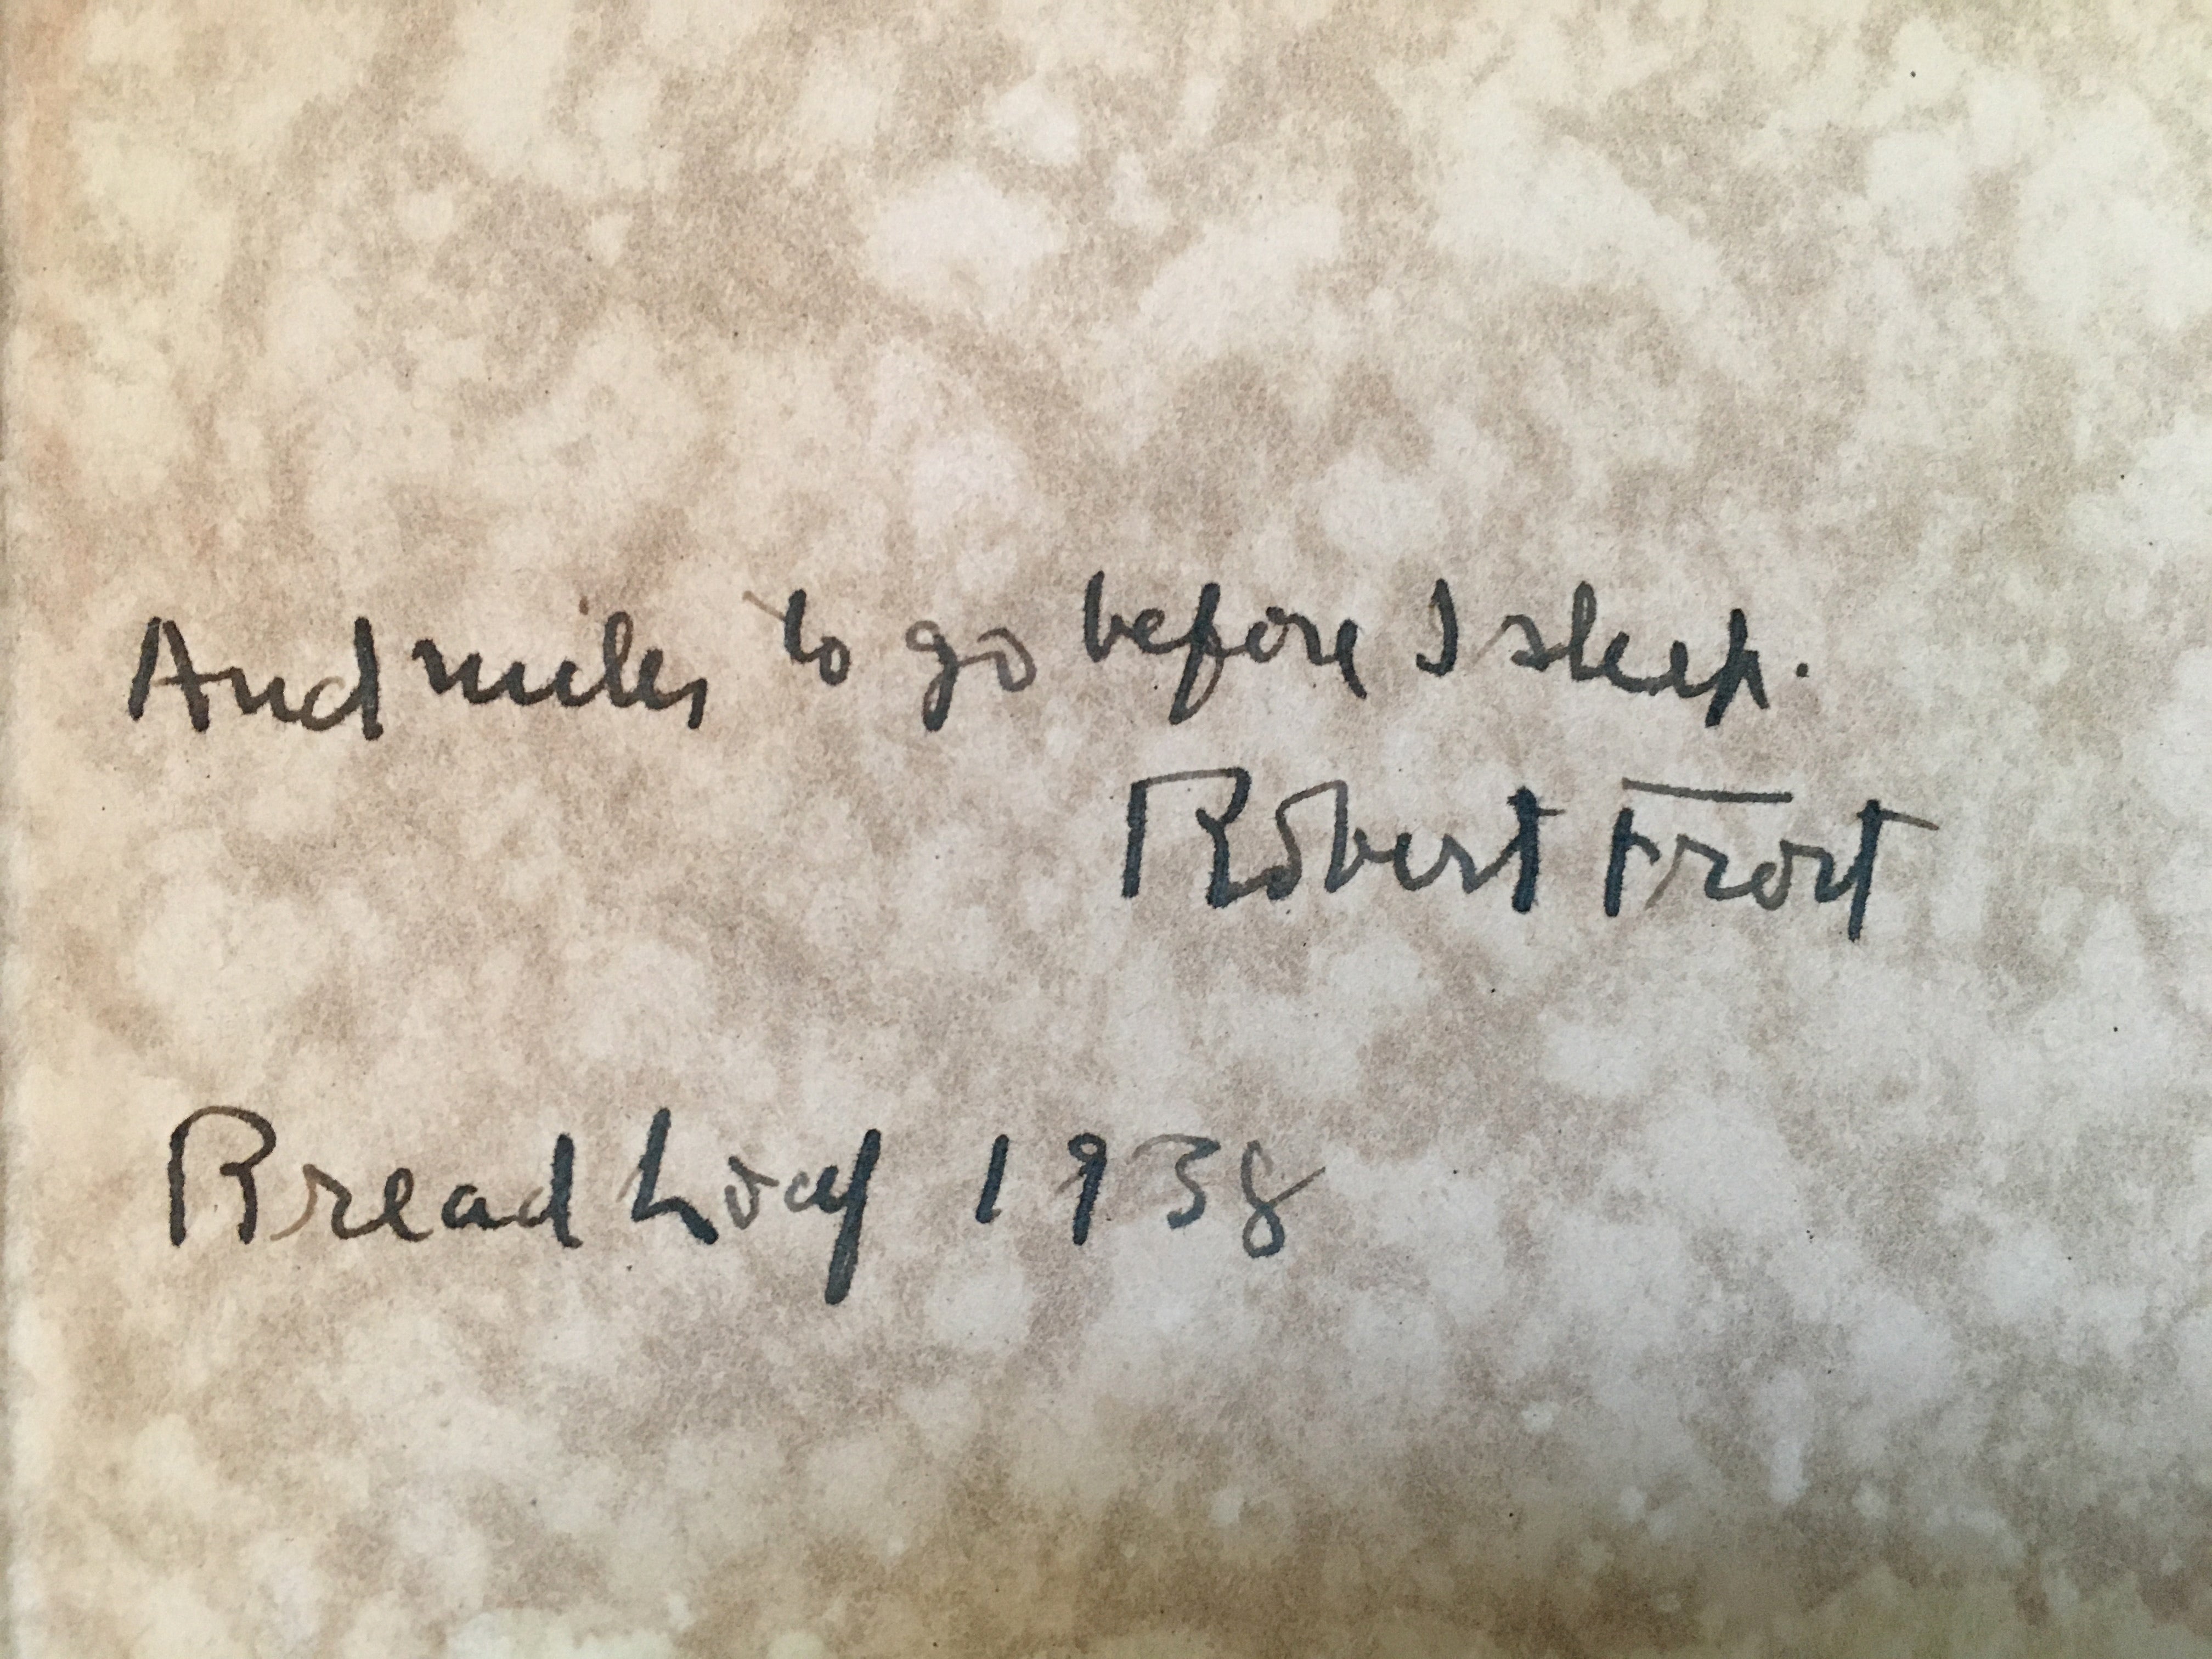 And miles to go before I sleep.
Robert Frost
Bread Loaf 1938